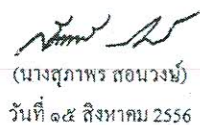 (นางสุภาพร สอนวงษ์)
วันที่ ๑๕ สิงหาคม 2556